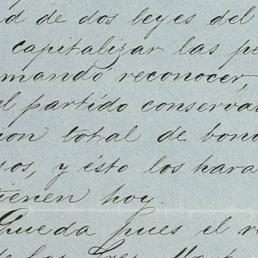 d de dos leyes del
capitalizar las pe
mando reconocer,
l partido conserva
ion total de bono
sos, y ésto los hara
tienen hoy.
Queda pues el r